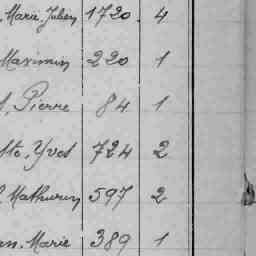 Marie, Julien 1720. 4
Maximin 220 1
Pierre 84 1
Yves 724 2
Mathurin 597 2
Marie 389 1